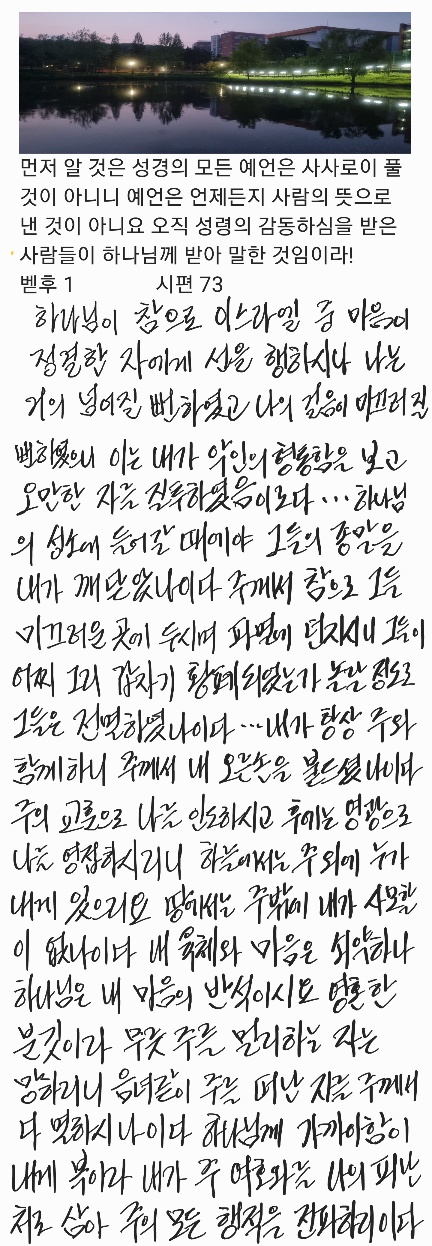 먼저 알 것은 성경의 모든 예언은 사사로이 풀
것이 아니니 예언은 언제든지 사람의 뜻으로
낸 것이 아니요 오직 성령의 감동하심을 받은
사람들이 하나님께 받아 말한 것임이라!
벧후 1 시편 73
하나님이 참으로 이스라엘 중 마음이
정결한 자에게 선을 행하시나 나는
거의 넘어질 뻔하였고 나의 걸음이 미끄러질
뻔하였으니 이는 내가 악인의 형통함을 보고
오만한 자를 질투하였음이로다 ... 하나님
의 성소에 들어갈 때에야 그들의 종말을
내가 깨달았나이다 주께서 참으로 그들
미끄러운 곳에 두시며 파멸에 던지시니 그들이
어찌 그리 갑자기 황폐되었는가 놀랄 정도로
그들은 전멸하였나이다 ... 내가 항상 주와
함께하니 주께서 내 오른손을 붙드셨나이다
주의 교훈으로 나를 인도하시고 후에는 영광으로
나를 영접하시리니 하늘에서는 주 외에 누가
내게 있으리요 땅에서는 주밖에 내가 사모할
이 없나이다 내 육체와 마음은 쇠약하나
하나님은 내 마음의 반석이시요 영원한
분깃이라 무릇 주를 멀리하는 자는
망하리니 음녀같이 주를 떠난 자를 주께서
다 멸하시나이다 하나님께 가까이함이
내게 복이라 내가 주 여호와를 나의 피난
처로 삼아 주의 모든 행적을 전파하리이다